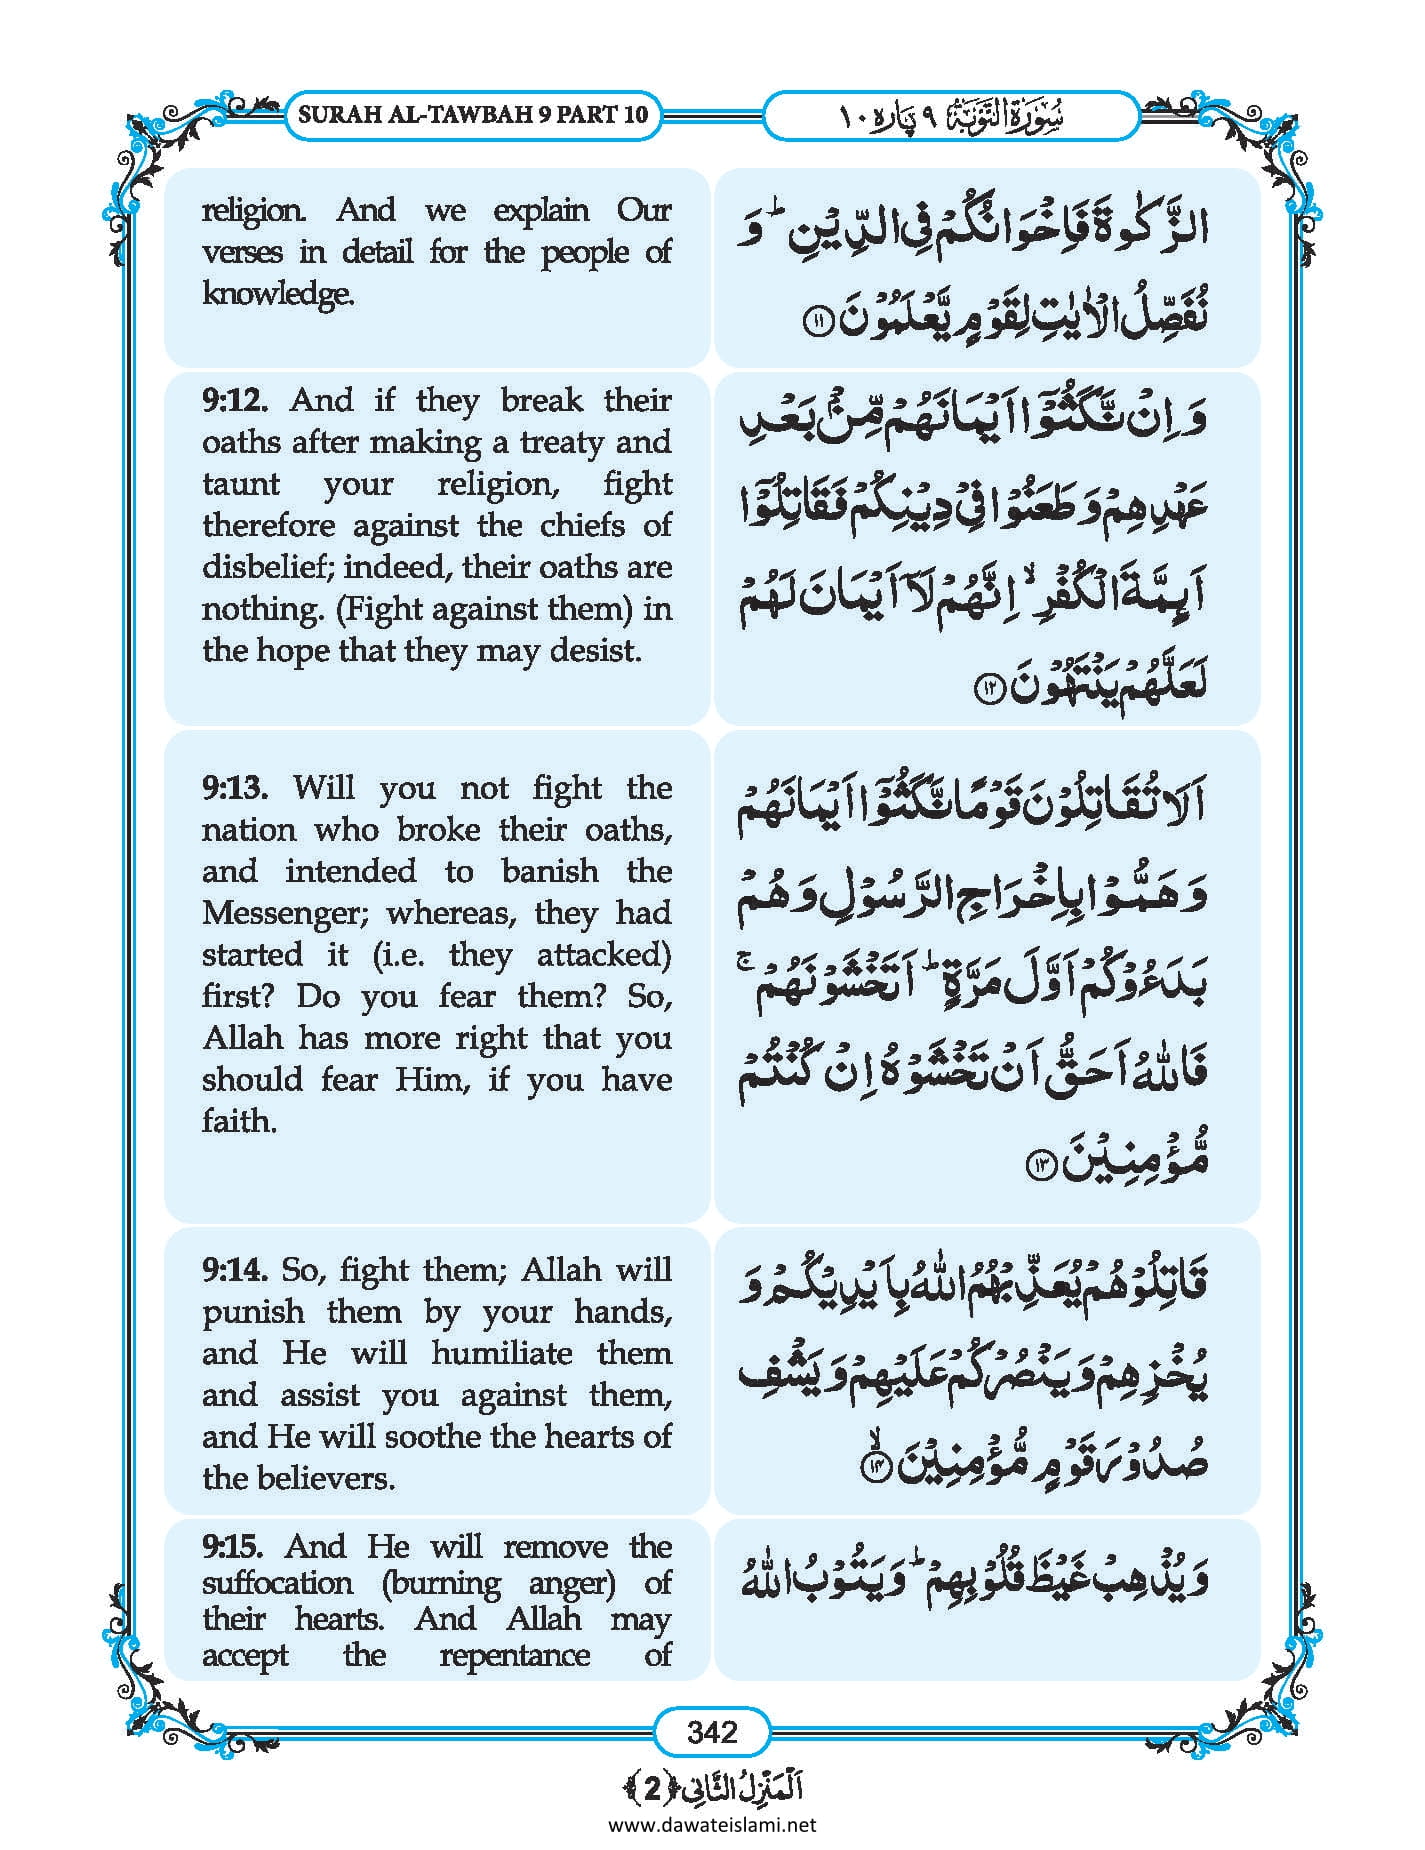 SURAH AL-TAWBAH 9 PART 10
سُوۡرَةُ التَّوۡبَةِ ٩ پارہ ١٠
religion. And we explain Our
verses in detail for the people of
knowledge.
الزَّکٰوةَ فَاِخْوَانُکُمْ فِی الدِّیۡنِ ؕ وَ
نُفَصِّلُ الۡاٰیٰتِ لِقَوْمٍ یَّعْلَمُوۡنَ ﴿١١﴾
9:12. And if they break their
oaths after making a treaty and
taunt your religion, fight
therefore against the chiefs of
disbelief; indeed, their oaths are
nothing. (Fight against them) in
the hope that they may desist.
وَ اِنۡ نَّکَثُوۡۤا اَیۡمَانَهُمۡ مِّنۡۢ بَعْدِ
عَهْدِهِمْ وَ طَعَنُوۡا فِیۡ دِیۡنِکُمْ فَقَاتِلُوۡۤا
اَئِمَّةَ الْکُفْرِ ۙ اِنَّهُمْ لَاۤ اَیۡمَانَ لَهُمْ
لَعَلَّهُمْ یَنۡتَهُوۡنَ ﴿١٢﴾
9:13. Will you not fight the
nation who broke their oaths,
and intended to banish the
Messenger; whereas, they had
started it (i.e. they attacked)
first? Do you fear them? So,
Allah has more right that you
should fear Him, if you have
faith.
اَلَا تُقَاتِلُوۡنَ قَوْمًا نَّکَثُوۡۤا اَیۡمَانَهُمْ
وَ هَمُّوۡا بِاِخْرَاجِ الرَّسُوۡلِ وَ هُمْ
بَدَءُوۡکُمْ اَوَّلَ مَرَّةٍ ؕ اَتَخْشَوْنَهُمْ ۚ
فَاللّٰهُ اَحَقُّ اَنۡ تَخْشَوْهُ اِنۡ کُنۡتُمْ
مُّؤْمِنِیۡنَ ﴿١٣﴾
9:14. So, fight them; Allah will
punish them by your hands,
and He will humiliate them
and assist you against them,
and He will soothe the hearts of
the believers.
قَاتِلُوۡهُمْ یُعَذِّبْهُمُ اللّٰهُ بِاَیۡدِیۡکُمْ وَ
یُخْزِهِمْ وَ یَنۡصُرْکُمْ عَلَیۡهِمْ وَ یَشْفِ
صُدُوۡرَ قَوْمٍ مُّؤْمِنِیۡنَ ﴿١٤﴾ۙ
9:15. And He will remove the
suffocation (burning anger) of
their hearts. And Allah may
accept the repentance of
وَ یُذْهِبْ غَیۡظَ قُلُوۡبِهِمْ ؕ وَ یَتُوۡبُ اللّٰهُ
342
اَلْمَنْزِلُ الثَّانِی ﴿2﴾
www.dawateislami.net